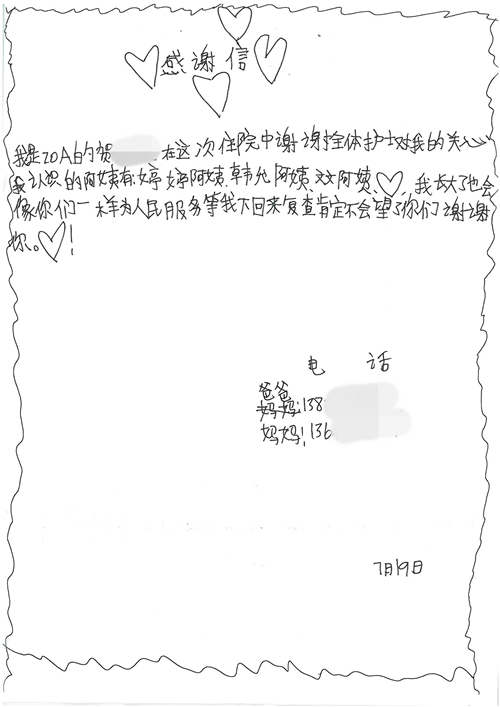 感谢信
我是20A的贺 在这次住院中谢谢全体护士对我的关心
我认识的阿姨有婷婷阿姨、韩允阿姨、文文阿姨、我长大了也会
像你们一样为人民服务等我下回来复查肯定不会望了你们谢谢
你。!
电 话
爸爸
妈妈:138
妈妈:136
7月19日